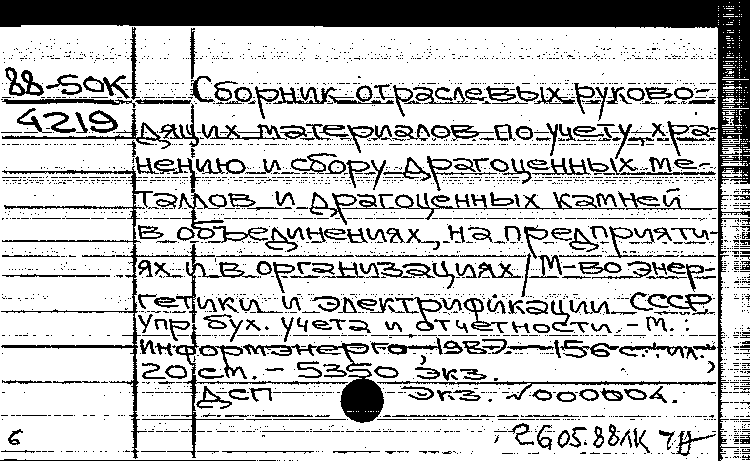 88-50К Сборник отраслевых руково-
4219 дящих материалов по учету, хра-
нению и сбору драгоценных ме-
таллов и драгоценных камней
в объединениях, на предприяти-
ях и в организациях / М-во энер-
гетики и электрификации СССР.
Упр. бух. учета и отчетности. - М. :
Информэнерго, 1987. - 156 с. : ил. ;
20 см. - 5350 экз.
ДСП Экз. √000004.
6 26.05.88